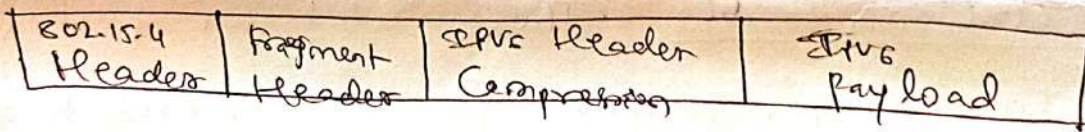 802.15.4 Header
Fragment Header
IPV6 Header Compression
IPV6 Payload